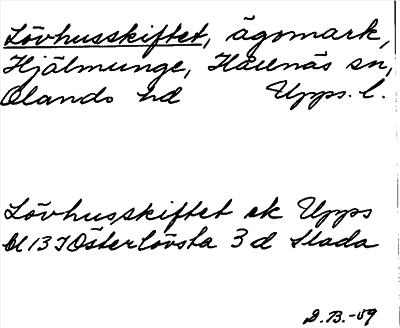 Lövhusskiftet, ägomark,
Hjälmunge, Harenäs sn,
Olands hd Upps. l.
Lövhusskiftet ek Upps
bl 13 I Österlövsta 3 d Slada
D.B.-09